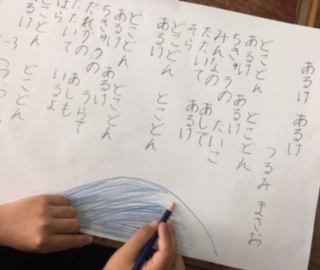 あるけ あるけ
つるみ まさお
どこどん どこどん
あるけ あるけ
ちきゅうの たいこ
みんなの あしで
たたいて あるけ
そら
どこどん どこどん
あるけ
どこどん どこどん
あるけ あるけ
ちきゅうの うらで
だれかの あしも
たたいて いるよ
ほら
どこどん どこどん